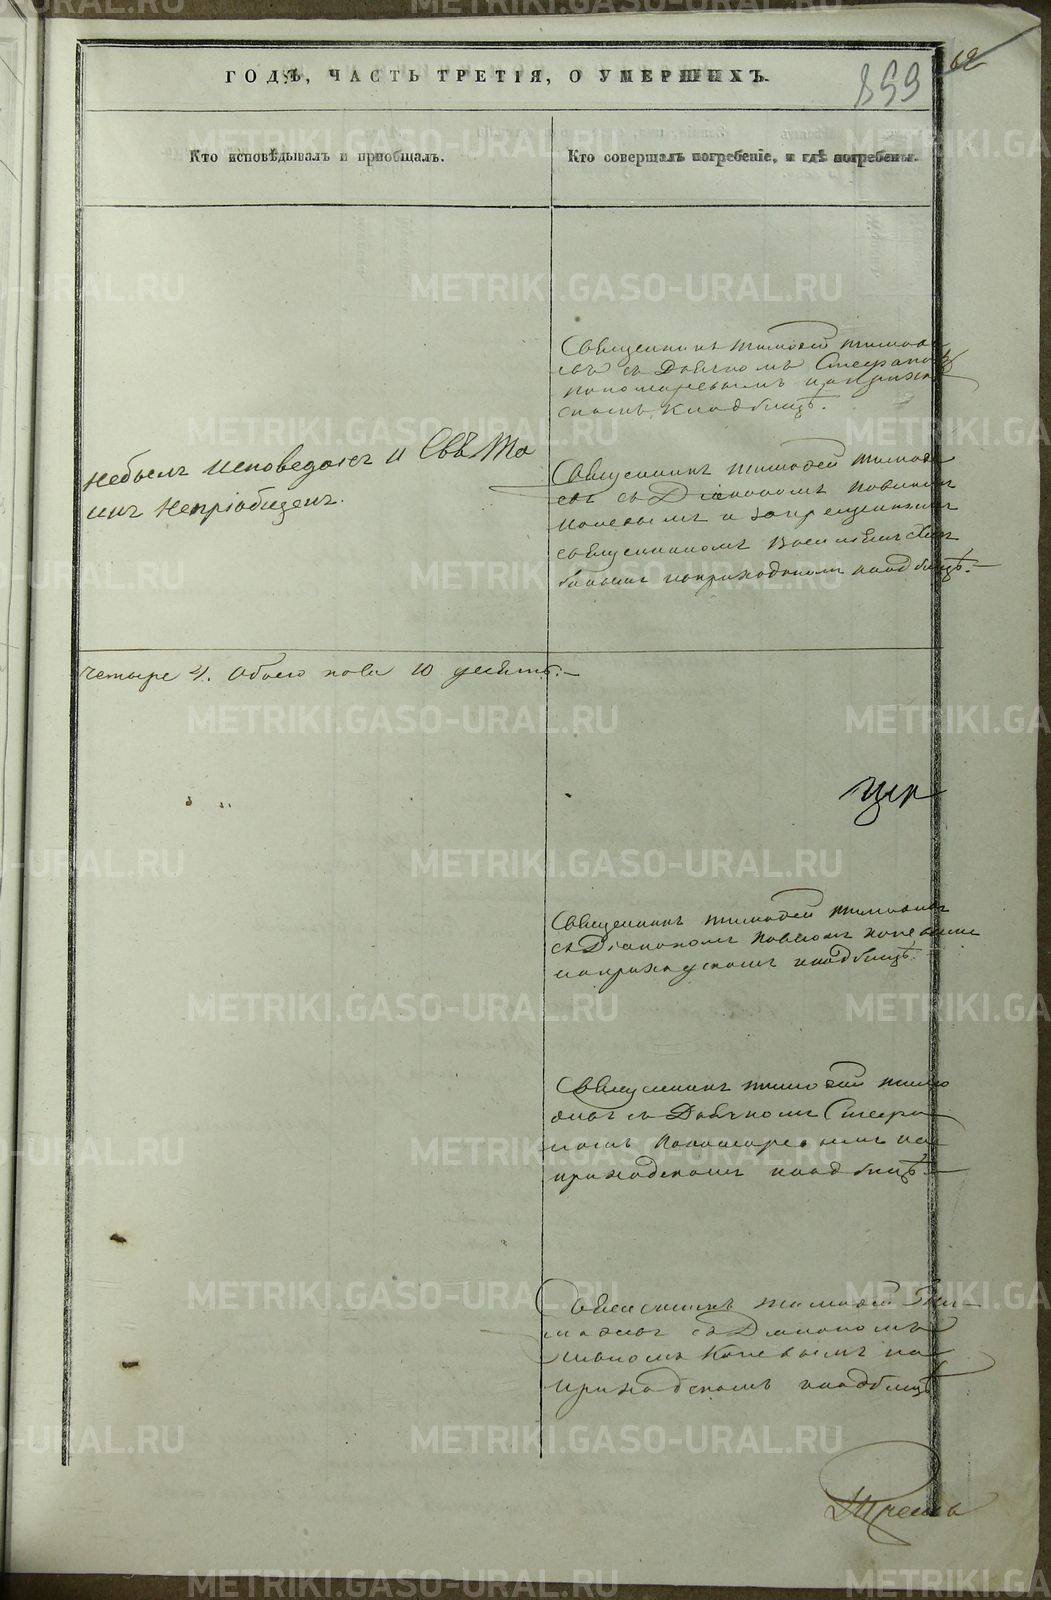 62
899
ГОДѢ, ЧАСТЬ ТРЕТІЯ, О УМЕРШИХЪ.
Кто исповѣдывалъ и пріобщалъ.
Кто совершалъ погребеніе, и гдѣ погребены.
Священникъ Тимофей Тимофе
евъ съ Дьячкомъ Стефаномъ
Пономаревымъ на приход
скомъ кладбищѣ.
небылъ исповеданъ и Свѣ Та
инъ непріобщенъ.
Священникъ Тимофей Тимофе
евъ съ Діакономъ
и запрещеннымъ
священникомъ
на приходскомъ кладбищѣ.
четыре 4. обоего пола 10 десять.
Священникъ Тимофей Тимофеевъ
съ Діакономъ
на приходскомъ кладбищѣ.
Священникъ Тимофей Тимо
феевъ съ Дьячкомъ Стефа
номъ Пономаревымъ на
приходскомъ кладбищѣ.
Священникъ Тимофей Ти
мофеевъ съ Діакономъ
на
приходскомъ кладбищѣ
METRIKI.GASO-URAL.RU